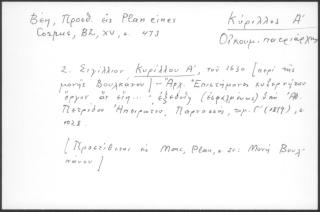 Βέη, Προσθ. εἰς Plan eines
Corpus, BZ, XV, σ. 473
Κύριλλος Α΄
Οἰκουμ. πατριάρχης
2. Σιγίλλιον Κυρίλλου Α΄, τοῦ 1630 [περὶ τῆς
μονῆς Βουλκάνου] - "Ἀρχ. Ἐπιστήμονι κυβερνήτου
ἔργον ἂν εἴη...", ἐξεδόθη (ἐσφαλμένως) ὑπὸ Ἀθ.
Πετρίδου Ἠπειρώτου, Παρνασσός, τομ. Γ΄ (1879), σ.
1028
[Προστίθεται εἰς Marc, Plan, σ. Μονὴ Βουλ-
κάνου]